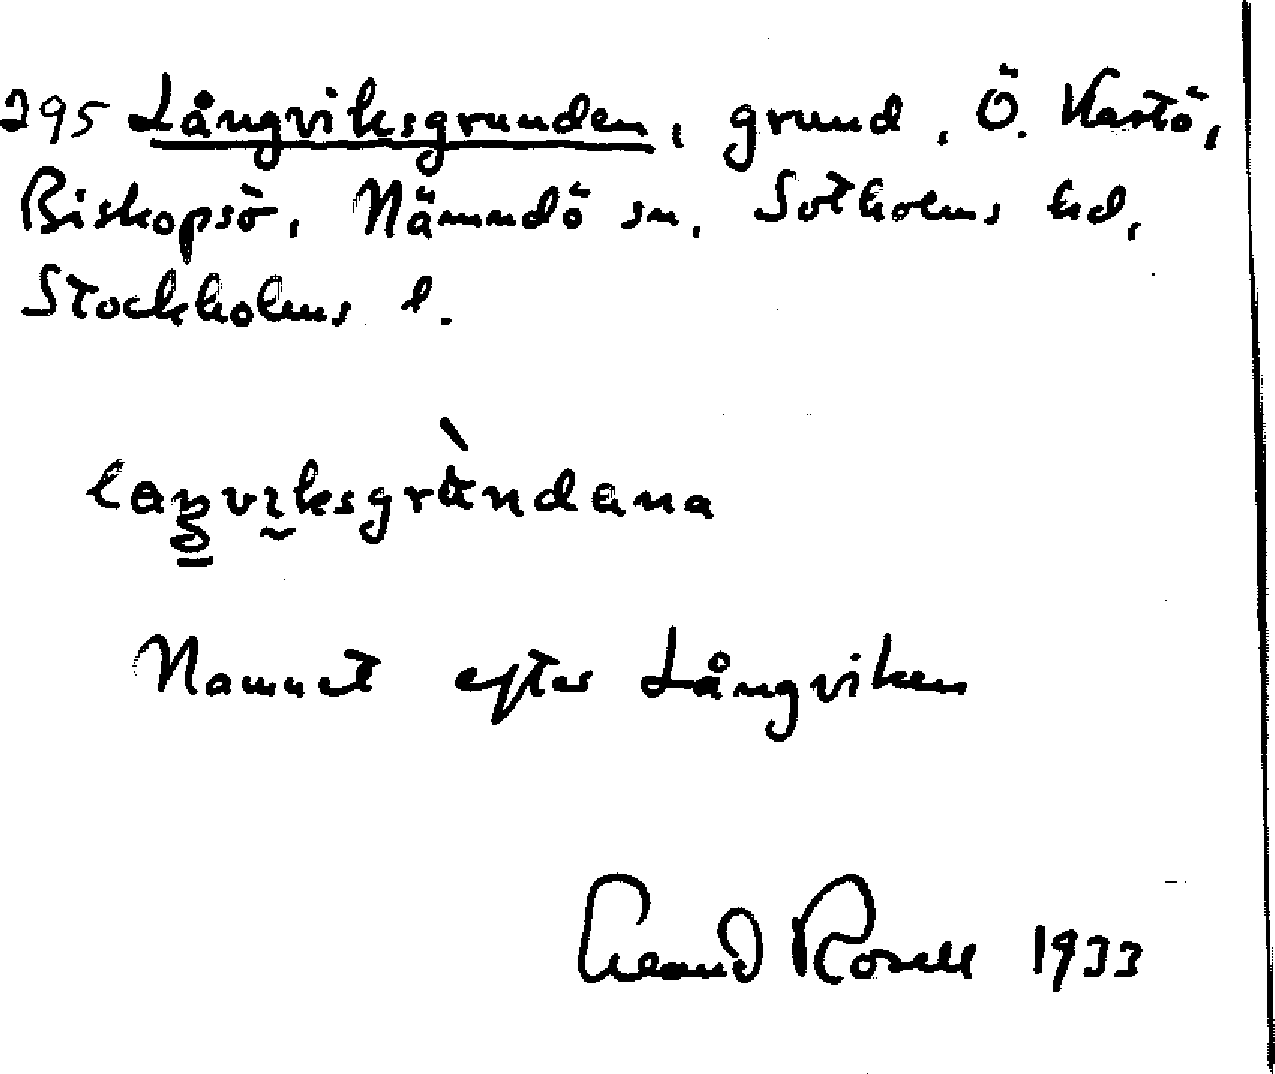 295 Långviksgrunden, grund, Ö. Kastö,
Biskopsö, Nämndö sn, Sotholms hd,
Stockholms l.
laŋvıksgrùndana
Namnet efter Långviken
Rosell 1933